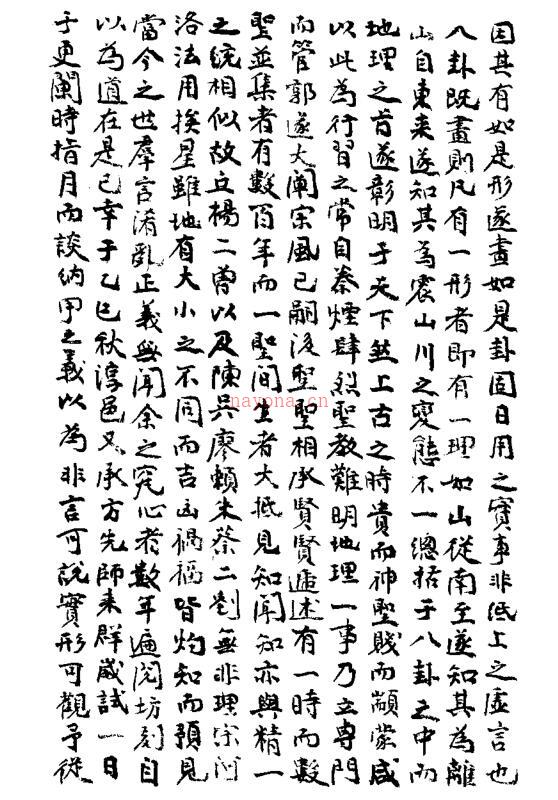 因其有如是形遂畫如是卦固日用之實事非纸上之虛言也
八卦既畫則凡有一形者即有一理如山從南至遂知其為離
山自東来遂知其為震山川之變態不一總括于八卦之中而
地理之旨遂彰明于天下然上古之時貴而神聖賤而顓蒙咸
以此為行習之常自秦煙肆烈聖教難明地理一事乃立專門
而管郭遂大闡宗風已嗣後聖聖相承賢賢遞述有一時而數
聖並集者有數百年而一聖间生者大抵見知闻知亦與精一
之統相似故丘楊二曾以及陳吳廖賴朱蔡二劉無非理宗河
洛法用挨星雖地有大小之不同而吉凶禍福皆灼知而預見
當今之世羣言淆亂正義無闻余之究心者數年遍阅坊刻自
以為道在是已幸于乙巳秋淳邑又承方先師来群咸試一日
于更闌時指月而談納甲之義以為非言可說實形可觀予從
nayona.cn